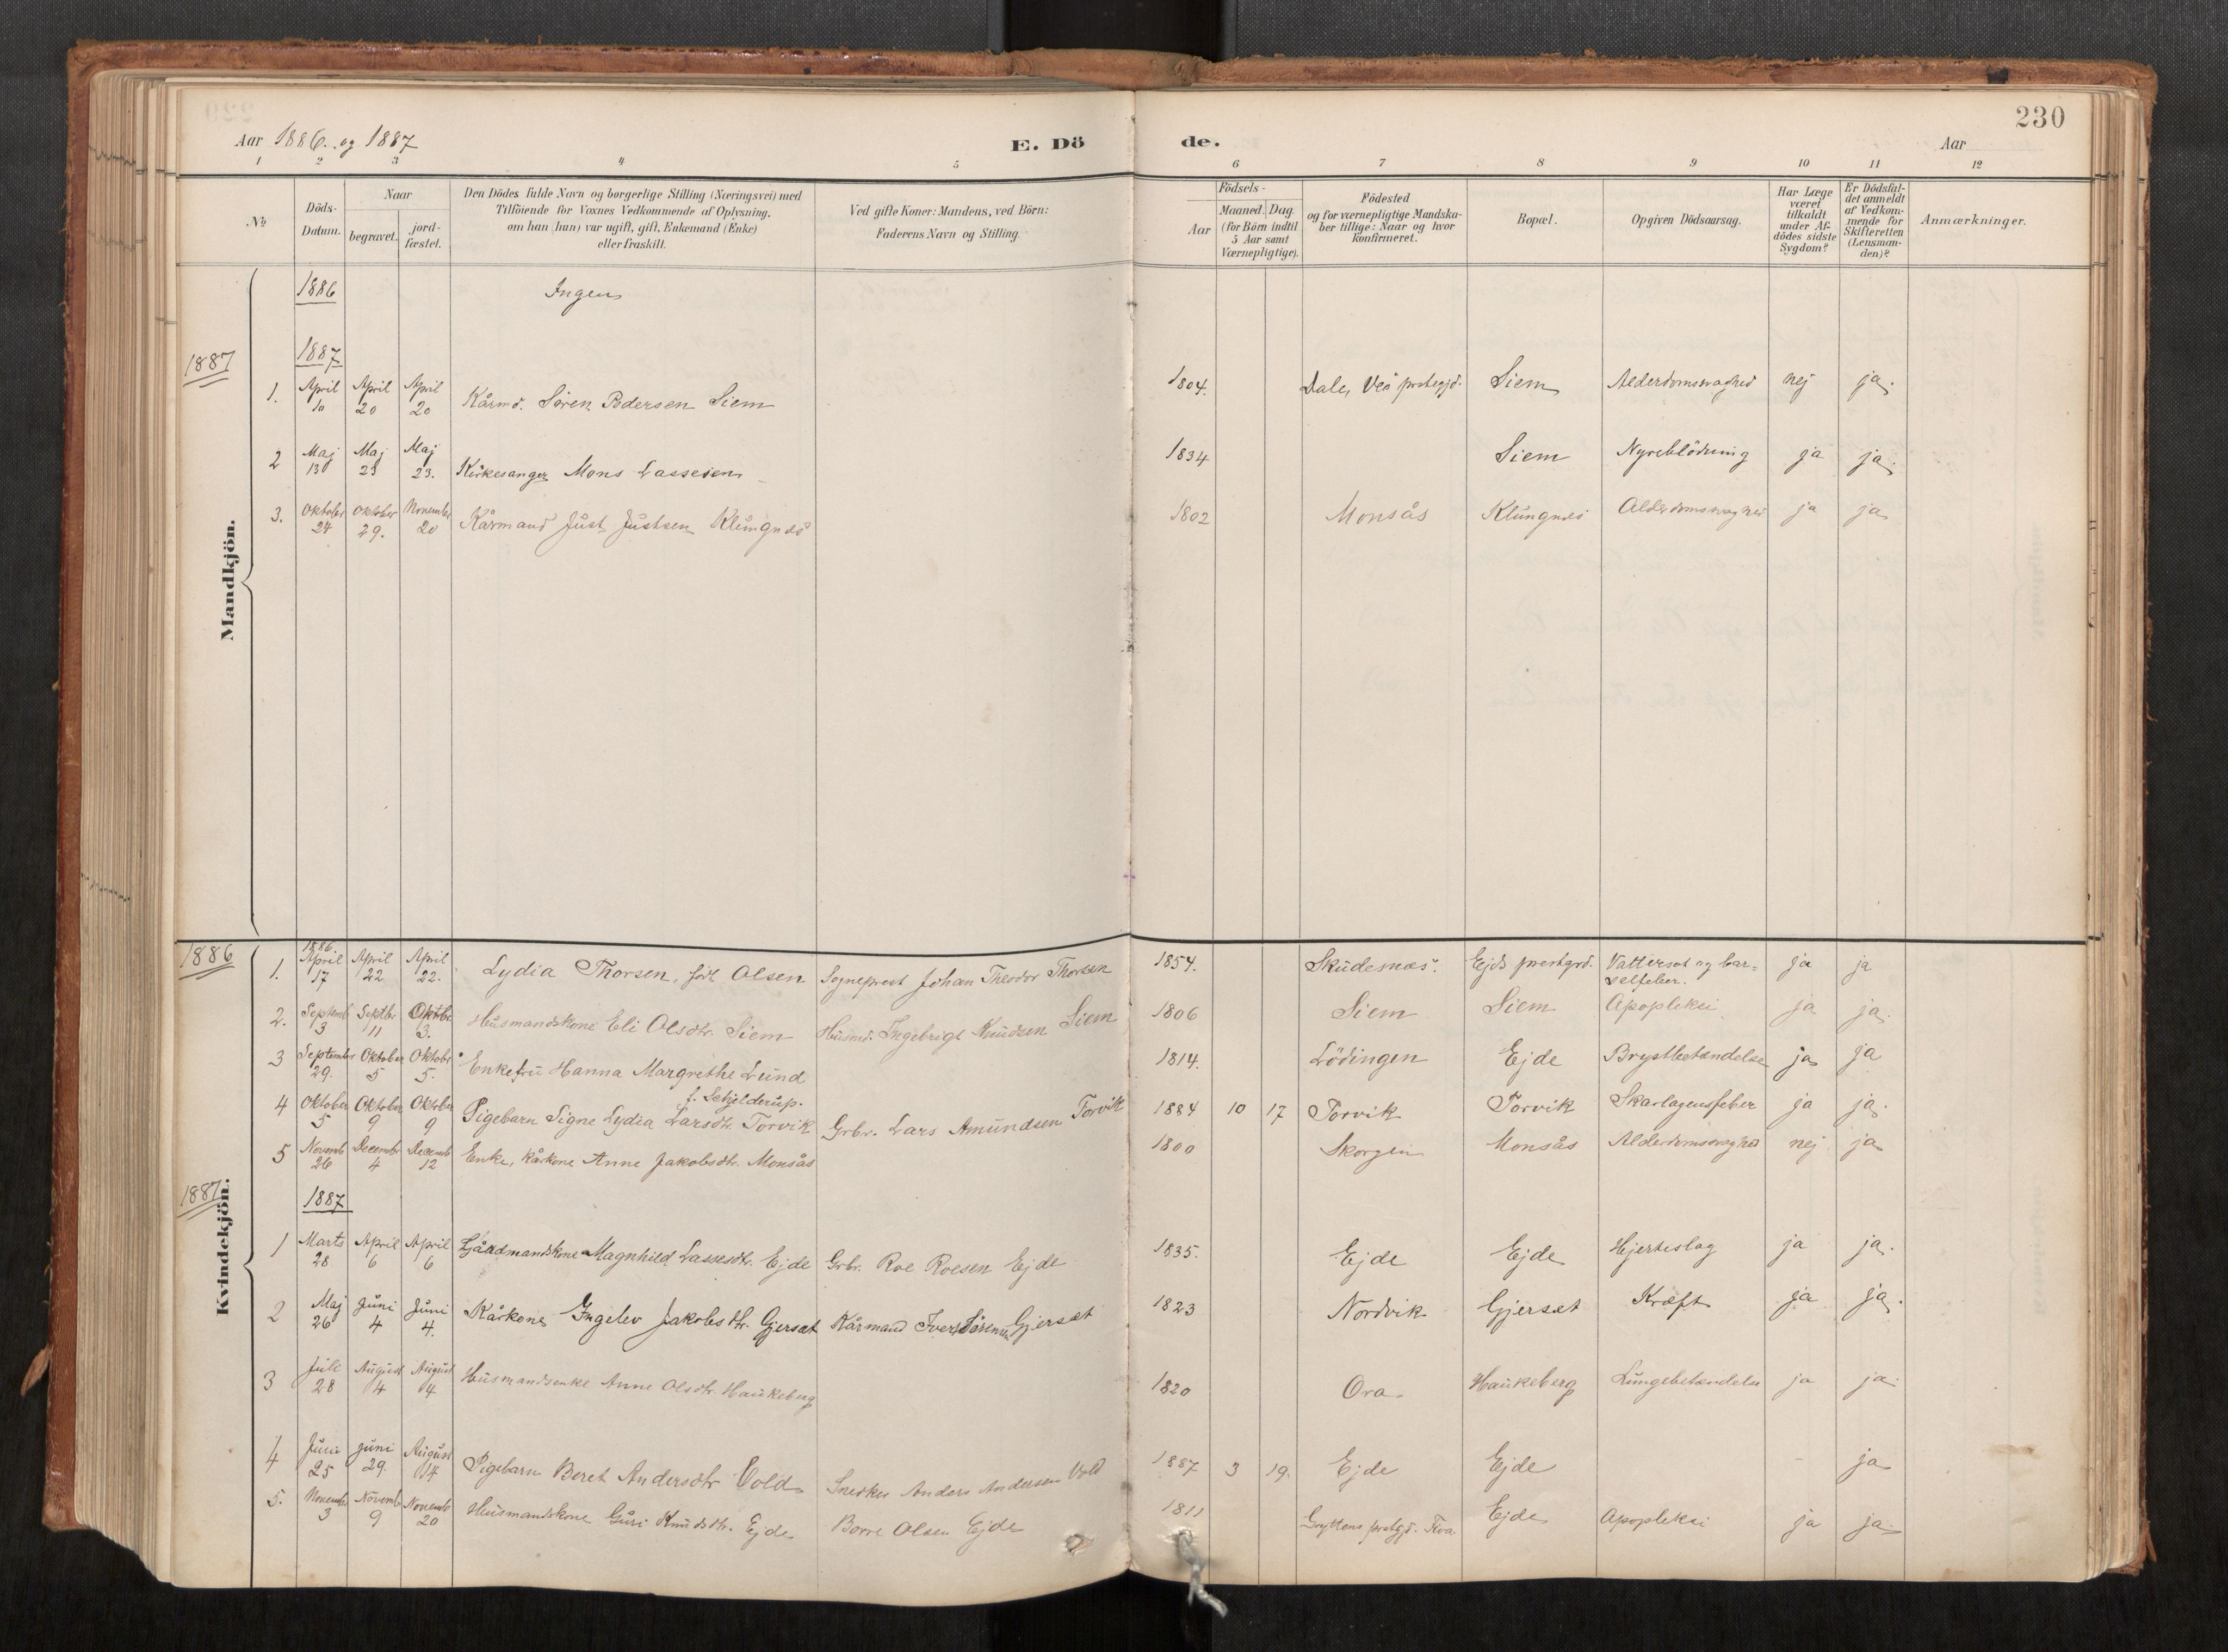 230
Aar 1886. og 1887
E. Dö de.
Aar
1 2 3 4 5 6 7 8 9 10 11 12
No
Döds-Datum.
Naar
begravet.
jord-fæstet.
Den Dödes fulde Navn og borgerlige Stilling (Næringsvei) med
Tilföiende for Voxnes Vedkommende af Oplysning.
om han (hun) var ugift, gift, Enkemand (Enke)
eller fraskilt.
Ved gifte Koner: Mandens, ved Börn:
Faderens Navn og Stilling.
Födsels-
Aar
Maaned. Dag.
(for Börn indtil
5 Aar samt
Værnepligtige).
Födested
og for værnepligtige Mandska-
ber tillige: Naar og hvor
konfirmeret.
Bopæl.
Opgiven Dödsaarsag.
Har Læge
været
tilkaldt
under Af-
dödes sidste
Sygdom?
Er Dödsfal-
det anmeldt
af Vedkom-
mende for
Skifteretten
(Lensman-
den)?
Anmærkninger.
Mandkjön.
1886 Ingen
1887
1887
1. April 10 April 20 April 20 Kårmd. Sören Pedersen Siem 1804. Dale, Veö prstegjd. Siem Alderdomssvaghed nej ja.
2 Maj 13 Maj 23 Maj 23. Kirkesanger Mons Lassesen 1834 Siem Nyreblödning ja ja.
3. Oktober 24 Oktober 29. November 20 Kårmand Just Justsen Klungnes 1802 Monsås Klungnes Alderdomssvaghed ja ja
Kvindekjön.
1886
1886.
1. April 17 April 22 April 22. Lydia Thorsen, föd Olsen Sogneprest Johan Theodor Thorsen 1854. Skudesnæs. Ejds prestgrd. Vattersot og bar-
selfeber. ja ja
2. Septemb 3 Septbr 11 Oktbr 3. Husmandskone Eli Olsdtr. Siem Husmd. Ingebrigt Knudsen Siem 1806 Siem Siem Apopleksi ja ja.
3 September 29. Oktober 5 Oktobr 5. Enkefru Hanna Margrethe Lund
f. Schjelderup. 1814. Lödingen Ejde Brystbetændelse ja ja
4 Oktober 5 Oktober 9 Oktober 9 Pigebarn Signe Lydia Larsdtr. Torvik Grbr. Lars Amundsen Torvik 1884 10 17 Torvik Torvik Skarlagensfeber ja ja.
5 Novemb 26 Decembr 4 Decemb 12 Enke, kårkone Anne Jakobsdtr. Monsås 1800 Skorgen Monsås Alderdomssvaghed nej ja
1887
1887
1 Marts 28 April 6 April 6 Gårdmandskone Magnhild Lassesdtr. Ejde Grbr. Roe Roesen Ejde 1835. Ejde Ejde Hjerteslag ja ja.
2 Maj 26 Juni 4 Juni 4. Kårkone Ingelev Jakobsdtr. Gjersæt Kårmand Iver Sörensen Gjersæt 1823 Nordvik Gjersæt Kræft ja ja.
3 Juli 28 August 4 August 4 Husmandsenke Anne Olsdtr. Haukeberg 1820 Ora Haukeberg Lungebetændelse ja ja.
4 Juni 25 Juni 29. August 14 Pigebarn Beret Andersdtr Vold Snedker Anders Andersen Vold 1887 3 19. Ejde Ejde ja
5. Novemb 3 Novemb 9 Novemb 20 Husmandskone Guri Knudsdtr. Ejde Borre Olsen Ejde 1811 Gryttens prstgjd. Ejde Apopleksi ja ja